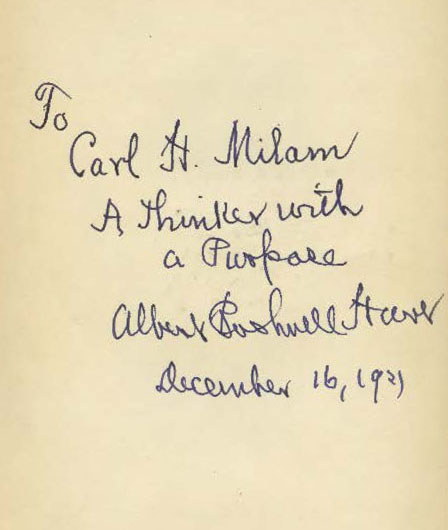 To
Carl H. Milam
A Thinker with
a Purpose
Albert Bushnell Hart
December 16, 1921